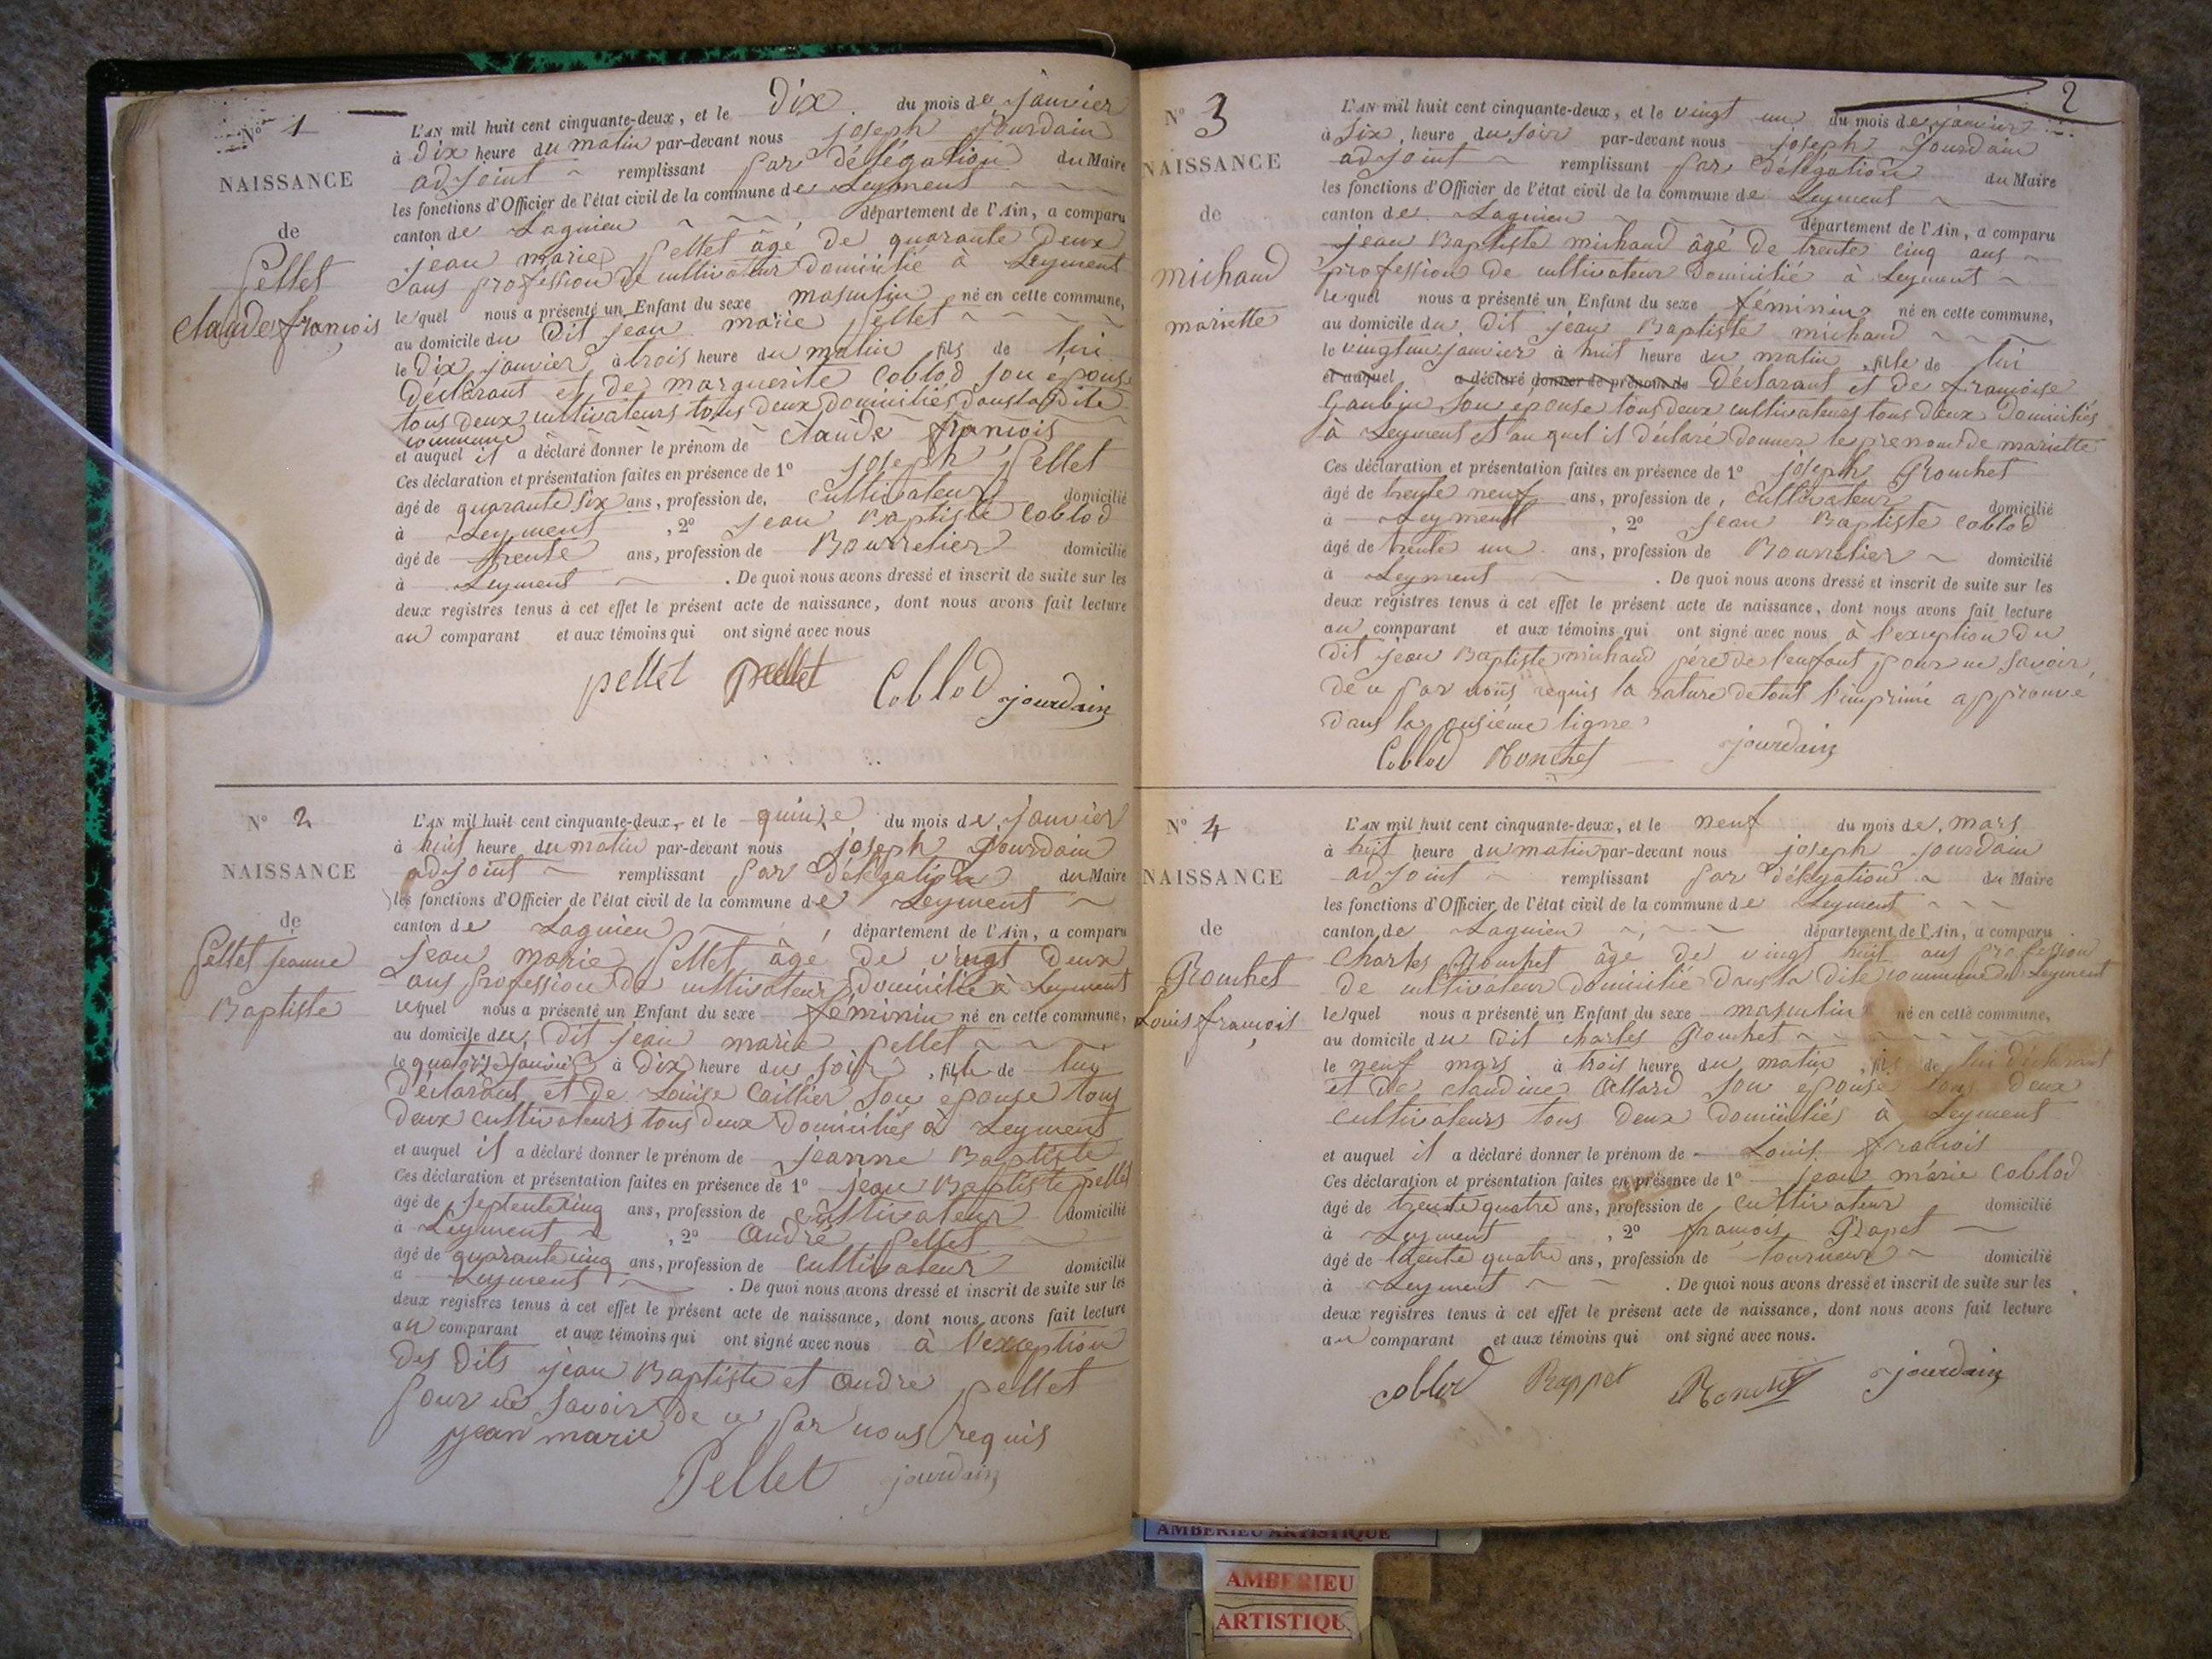 N° 1
NAISSANCE
de
Pellet
claude françois
L'AN mil huit cent cinquante-deux, et le Dix du mois de janvier
à Dix heure du matin par-devant nous joseph jourdain
adjoint remplissant par délégation du Maire
les fonctions d'Officier de l'état civil de la commune de Leyment
canton de Lagnieu département de l'Ain, a comparu
jean marie Pellet âgé de quarante deux
ans profession de cultivateur domicilié à Leyment
lequel nous a présenté un Enfant du sexe masculin né en cette commune,
au domicile du dit jean marie Pellet
le Dix janvier à trois heure du matin fils de lui
déclarant et de marguerite Coblod son epouse
tous deux cultivateurs tous deux domiciliés dans la dite
commune
et auquel il a déclaré donner le prénom de claude françois
Ces déclaration et présentation faites en présence de 1° joseph Pellet
âgé de quarante six ans, profession de, cultivateur domicilié
à Leyment , 2° jean Baptiste Coblod
âgé de trente ans, profession de Bourrelier domicilié
à Leyment . De quoi nous avons dressé et inscrit de suite sur les
deux registres tenus à cet effet le présent acte de naissance, dont nous avons fait lecture
au comparant et aux témoins qui ont signé avec nous
pellet pellet Coblod jourdain
N° 2
NAISSANCE
de
Pellet jeanne
Baptiste
L'AN mil huit cent cinquante-deux, et le quinze du mois de janvier
à huit heure du matin par-devant nous joseph jourdain
adjoint remplissant par délégation du Maire
les fonctions d'Officier de l'état civil de la commune de Leyment
canton de Lagnieu , département de l'Ain, a comparu
jean marie Pellet âgé de vingt deux
ans profession de cultivateur domicilié à Leyment
lequel nous a présenté un Enfant du sexe féminin né en cette commune,
au domicile du dit jean marie Pellet
le quatorze janvier à Dix heure du soir , fille de luy
déclarant et de Louise Caillier son epouse tous
deux cultivateurs tous deux domiciliés à Leyment
et auquel il a déclaré donner le prénom de jeanne Baptiste
Ces déclaration et présentation faites en présence de 1° jean Baptiste pellet
âgé de septente cinq ans, profession de cultivateur domicilié
à Leyment , 2° André Pellet
âgé de quarante cinq ans, profession de cultivateur domicilié
à Leyment . De quoi nous avons dressé et inscrit de suite sur les
deux registres tenus à cet effet le présent acte de naissance, dont nous avons fait lecture
au comparant et aux témoins qui ont signé avec nous à l'exception
des dits jean Baptiste et andre pellet
pour ne savoir de ce par nous requis
jean marie
Pellet jourdain
2
N° 3
NAISSANCE
de
michaud
mariette
L'AN mil huit cent cinquante-deux, et le vingt un du mois de janvier
à six heure du soir par-devant nous joseph jourdain
adjoint remplissant par délégation du Maire
les fonctions d'Officier de l'état civil de la commune de Leyment
canton de Lagnieu département de l'Ain, a comparu
jean Baptiste michaud âgé de trente cinq ans
profession de cultivateur domicilié à Leyment
lequel nous a présenté un Enfant du sexe féminin né en cette commune,
au domicile du dit jean Baptiste michaud
le vingt un janvier à huit heure du matin , fille de lui
et auquel a déclaré donner le prénom de déclarant et de françoise
son epouse tous deux cultivateurs tous deux domiciliés
à Leyment et au quel il déclaré donner le prenom de mariette
Ces déclaration et présentation faites en présence de 1° joseph Ronchet
âgé de trente neuf ans, profession de, cultivateur domicilié
à Leyment , 2° jean Baptiste Coblod
âgé de trente un ans, profession de Bourrelier domicilié
à Leyment . De quoi nous avons dressé et inscrit de suite sur les
deux registres tenus à cet effet le présent acte de naissance, dont nous avons fait lecture
au comparant et aux témoins qui ont signé avec nous à l'exception du
dit jean Baptiste michaud père de l'enfant pour ne savoir
de ce par nous requis la rature de tout l'imprimé approuvé
dans la onsiéme ligne
Coblod Ronchet jourdain
N° 4
NAISSANCE
de
Ronchet
Louis françois
L'AN mil huit cent cinquante-deux, et le neuf du mois de mars
à huit heure du matin par-devant nous joseph jourdain
adjoint remplissant par délégation du Maire
les fonctions d'Officier de l'état civil de la commune de Leyment
canton de Lagnieu département de l'Ain, a comparu
Charles Ronchet âge de vingt huit ans profession
de cultivateur domicilié dans la dite commune de Leyment
lequel nous a présenté un Enfant du sexe masculin né en cette commune,
au domicile du dit charles Ronchet
le neuf mars à trois heure du matin , fils de lui déclarant
et de claudine Allard son epouse tous deux
cultivateurs tous deux domiciliés à Leyment
et auquel il a déclaré donner le prénom de Louis françois
Ces déclaration et présentation faites en présence de 1° jean marie Coblod
âgé de trente quatre ans, profession de cultivateur domicilié
à Leyment , 2° françois Rapet
âgé de trente quatre ans, profession de tourneur domicilié
à Leyment . De quoi nous avons dressé et inscrit de suite sur les
deux registres tenus à cet effet le présent acte de naissance, dont nous avons fait lecture
au comparant et aux témoins qui ont signé avec nous.
coblod Rappet Ronchet jourdain
AMBERIEU ARTISTIQUE
AMBERIEU
ARTISTIQU